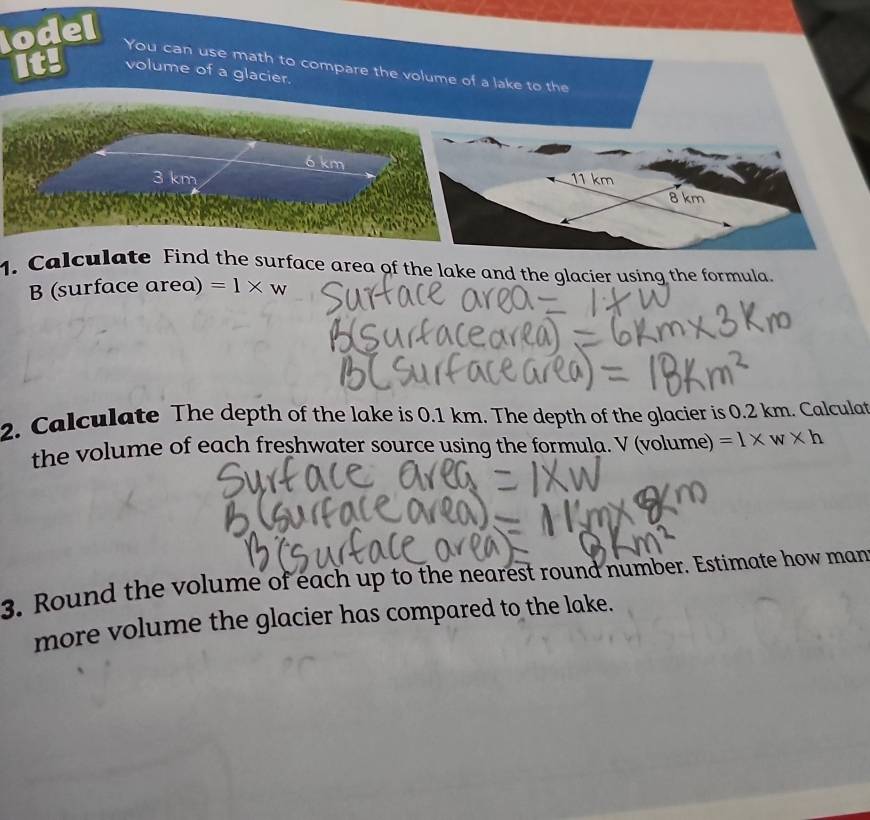 lodel
It!
You can use math to compare the volume of a lake to the
volume of a glacier.
6 km
3 km
11 km
8 km
1. Calculate Find the surface area of the lake and the glacier using the formula.
B (surface area) = l × w
Surface area = l × w
B(surface area) = 6km × 3km
B(surface area) = 18km²
2. Calculate The depth of the lake is 0.1 km. The depth of the glacier is 0.2 km. Calculat
the volume of each freshwater source using the formula. V (volume) = l × w × h
Surface area = l × w
B(surface area) = 11km × 8km
B(surface area) = 8km²
3. Round the volume of each up to the nearest round number. Estimate how man
more volume the glacier has compared to the lake.